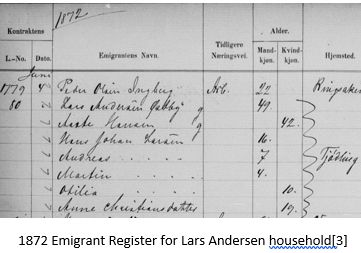 1872
Kontraktens Emigrantens Navn. Tidligere Næringsvei. Alder. Hjemsted.
L.-No. Dato. Mandkjøn. Kvindkjøn.
Juni
1779 4 Peder Olsen Arb. 22 Ringsaker
80 Lars Andersen g 49
Hansen g 42.
Hans Johan Larsen 16.
Andreas . . . . . 7
Martin . . . . . 4.
Otilia . . . . . 10.
Anne Christiansdatter 19.
1872 Emigrant Register for Lars Andersen household[3]